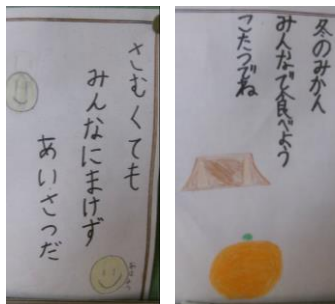 さむくても
みんなにまけず
あいさつだ
冬のみかん
みんなで食べよう
こたつでね